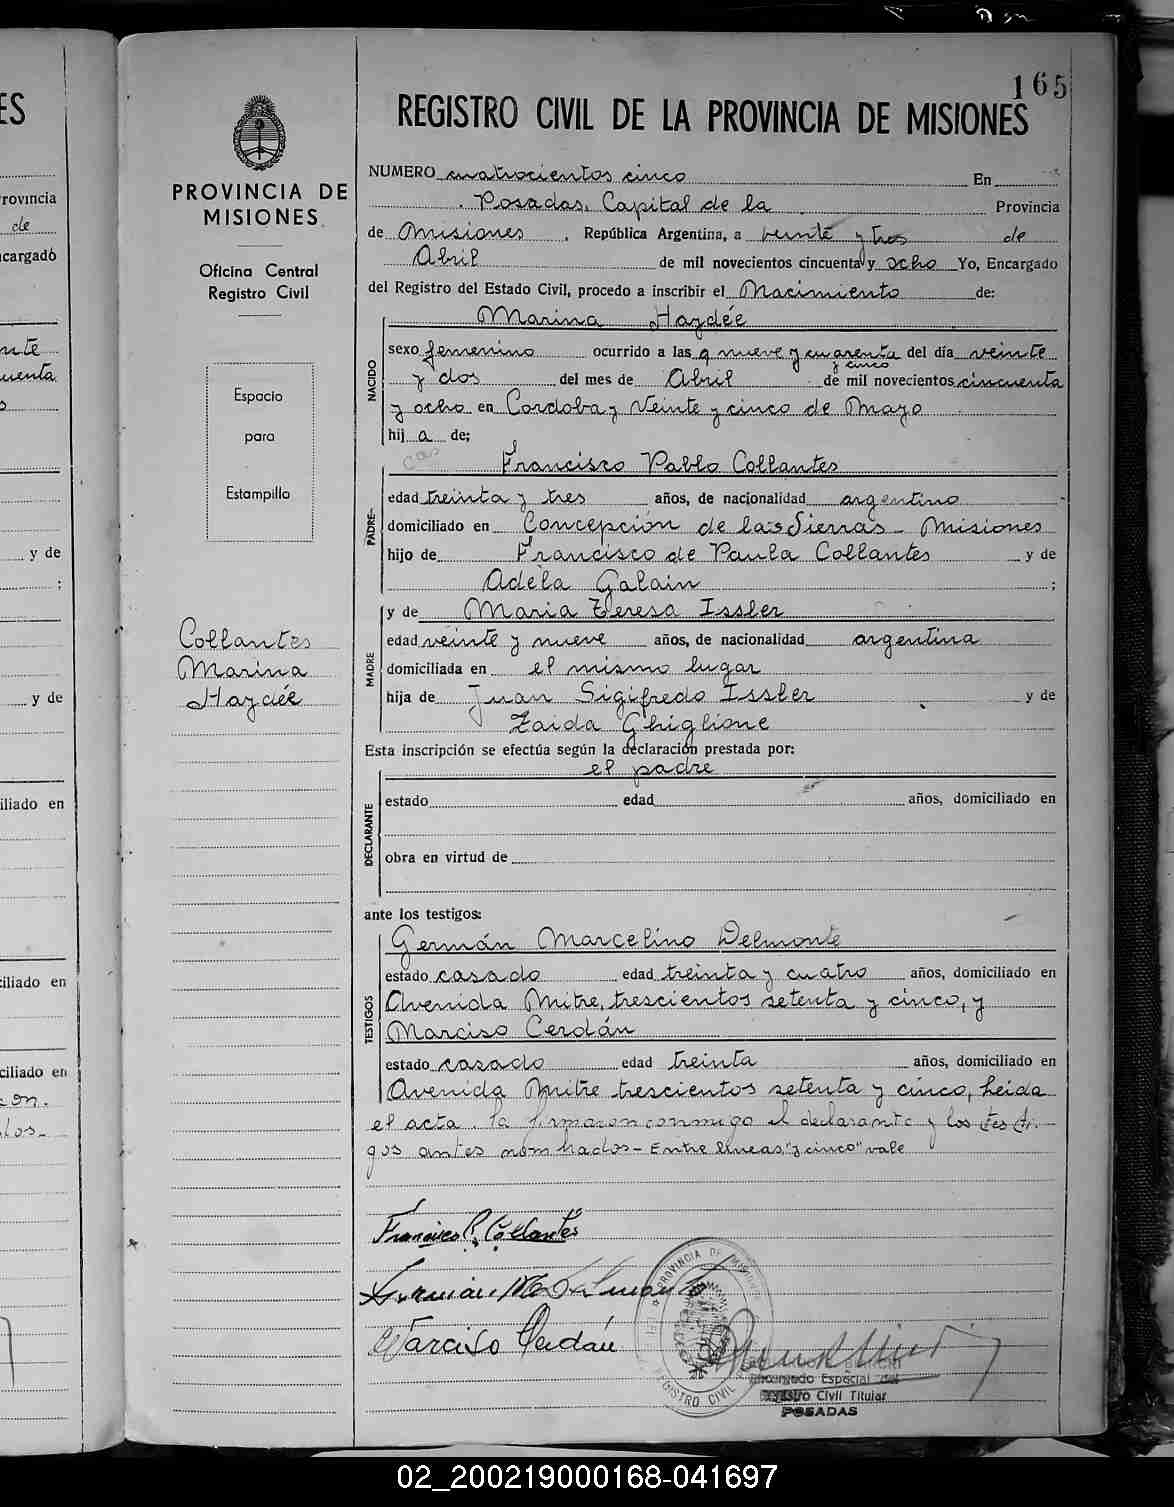 165
REGISTRO CIVIL DE LA PROVINCIA DE MISIONES
PROVINCIA DE
MISIONES
Oficina Central
Registro Civil
Espacio
para
Estampilla
Collantes
Marina
Haydée
NUMERO cuatrocientos cinco En
Posadas, Capital de la Provincia
de Misiones, República Argentina, a veinte y tres de
Abril de mil novecientos cincuenta y ocho Yo, Encargado
del Registro del Estado Civil, procedo a inscribir el Nacimiento de:
Marina Haydée
NACIDO
sexo femenino ocurrido a las 9 nueve y cuarenta del día veinte
y cinco
y dos del mes de Abril de mil novecientos cincuenta
y ocho en Cordoba y Veinte y cinco de Mayo
hija de;
cas
Francisco Pablo Collantes
PADRE
edad treinta y tres años, de nacionalidad argentino
domiciliado en Concepción de la Sierras - Misiones
hijo de Francisco de Paula Collantes y de
Adela Galain ;
y de Maria Teresa Issler
MADRE
edad veinte y nueve años, de nacionalidad argentina
domiciliada en el mismo lugar
hija de Juan Sigifredo Issler y de
Zaida Ghiglione
Esta inscripción se efectúa según la declaración prestada por:
el padre
DECLARANTE
estado edad años, domiciliado en
obra en virtud de
ante los testigos:
Germán Marcelino Delmonte
TESTIGOS
estado casado edad treinta y cuatro años, domiciliado en
Avenida Mitre, trescientos setenta y cinco, y
Narciso Cerdán
estado casado edad treinta años, domiciliado en
Avenida Mitre trescientos setenta y cinco, leida
el acta, la firmaron conmigo el declarante y los testi-
gos antes nombrados - Entre lineas, "y cinco" vale
Francisco P. Collantes
German M. Delmonte
Narciso Cerdán
PROVINCIA DE MISIONES
REGISTRO CIVIL
Encargado Especial del
Registro Civil Titular
POSADAS
ES
rovincia
de
ncargado
nte
uenta
y de
;
y de
iliado en
iliado en
ciliado en
con.
los-
02_200219000168-041697